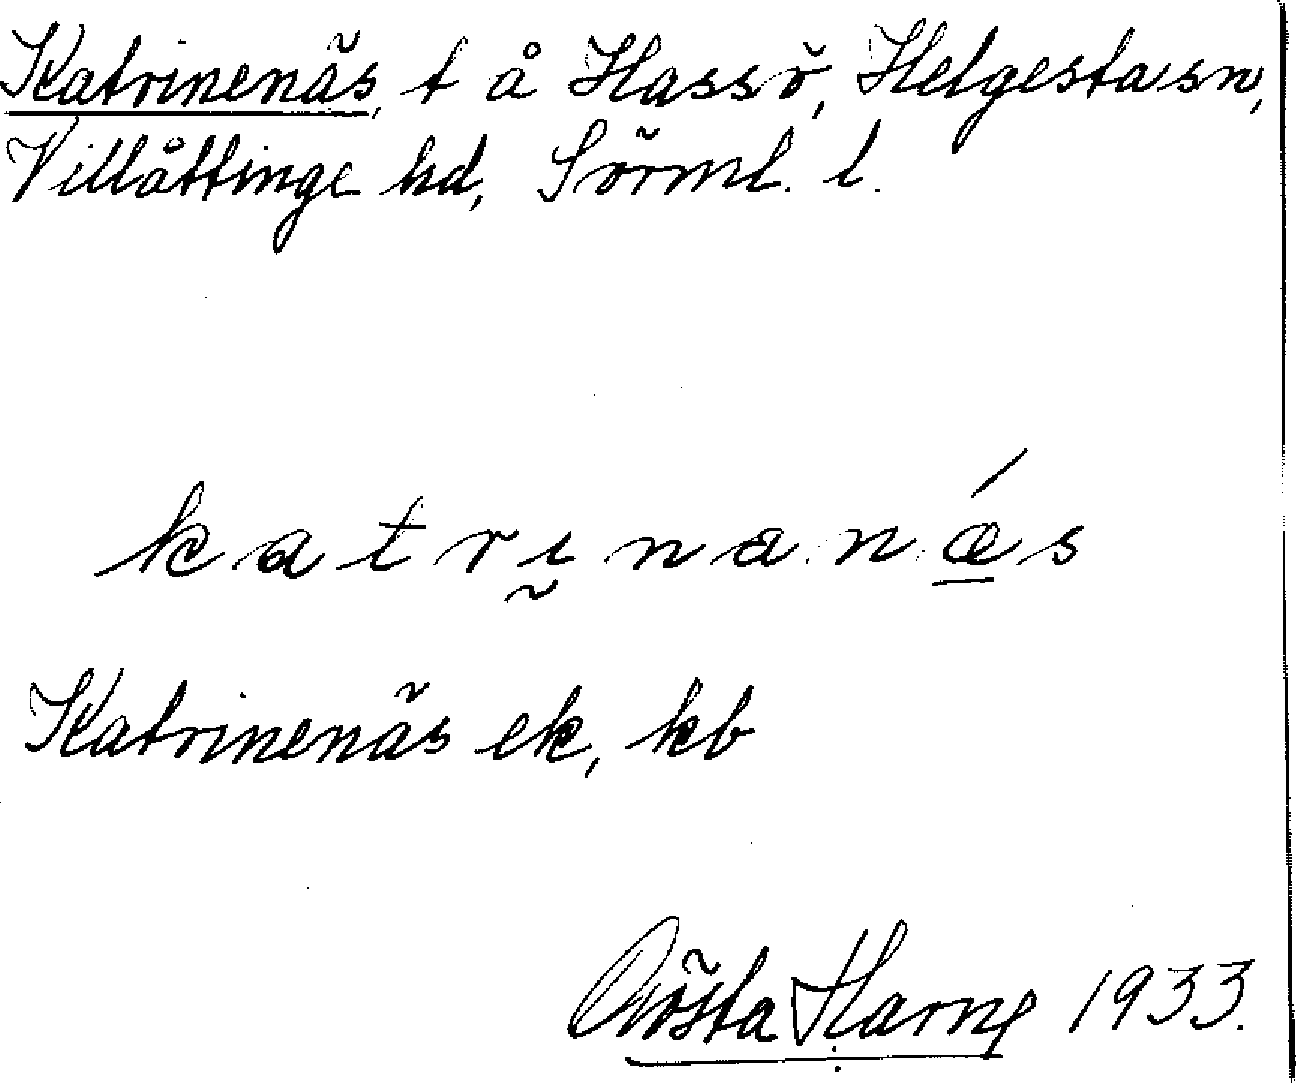 Katrinenäs, t å Hassö, Helgesta sn,
Villåttinge hd, Sörml. l.
katrı̰nanǽ̱s
Katrinenäs ek, kb
Gösta Harne 1933.